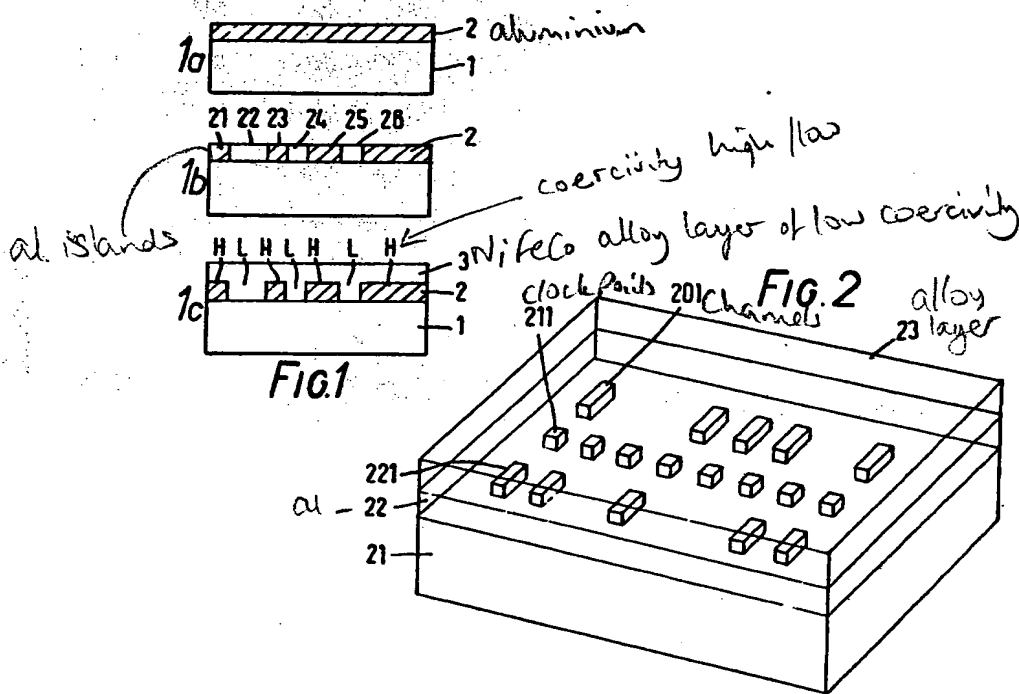 1a
2 aluminium
1
21 22 23 24 25 26 2
1b
al. islands
coercivity high/low
H L H L H L H
3 NiFeCo alloy layer of low coercivity
1c
2
1
FIG.1
FIG.2
clock
211
201 Channels
alloy
layer
23
221
al - 22
21